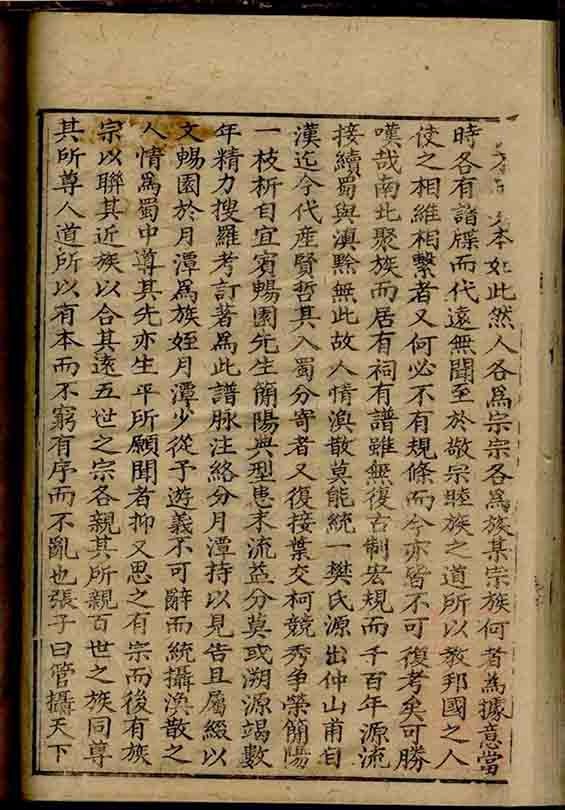 本如此然人各為宗宗各為族某宗族何者為據意當
時各有譜牒而代遠無聞至於敬宗睦族之道所以教邦國之人
使之相維相繫者又何必不有規條而今亦皆不可復考矣可勝
嘆哉南北聚族而居有祠有譜雖無復古制宏規而千百年源流
接續蜀與滇黔無此故人情渙散莫能統一樊氏源出仲山甫自
漢迄今代産賢哲其入蜀分寄者又復接葉交柯競秀争榮簡陽
一枝析自宜賓暢園先生簡陽典型患末流益分莫或溯源竭數
年精力搜羅考訂著為此譜脉注絡分月潭持以見告且屬綴以
文暢園於月潭為族姪月潭少從予遊義不可辭而統攝渙散之
人情為蜀中尊其先亦生平所願聞者抑又思之有宗而後有族
宗以聯其近族以合其遠五世之宗各親其所親百世之族同尊
其所尊人道所以有本而不窮有序而不亂也張子曰管攝天下